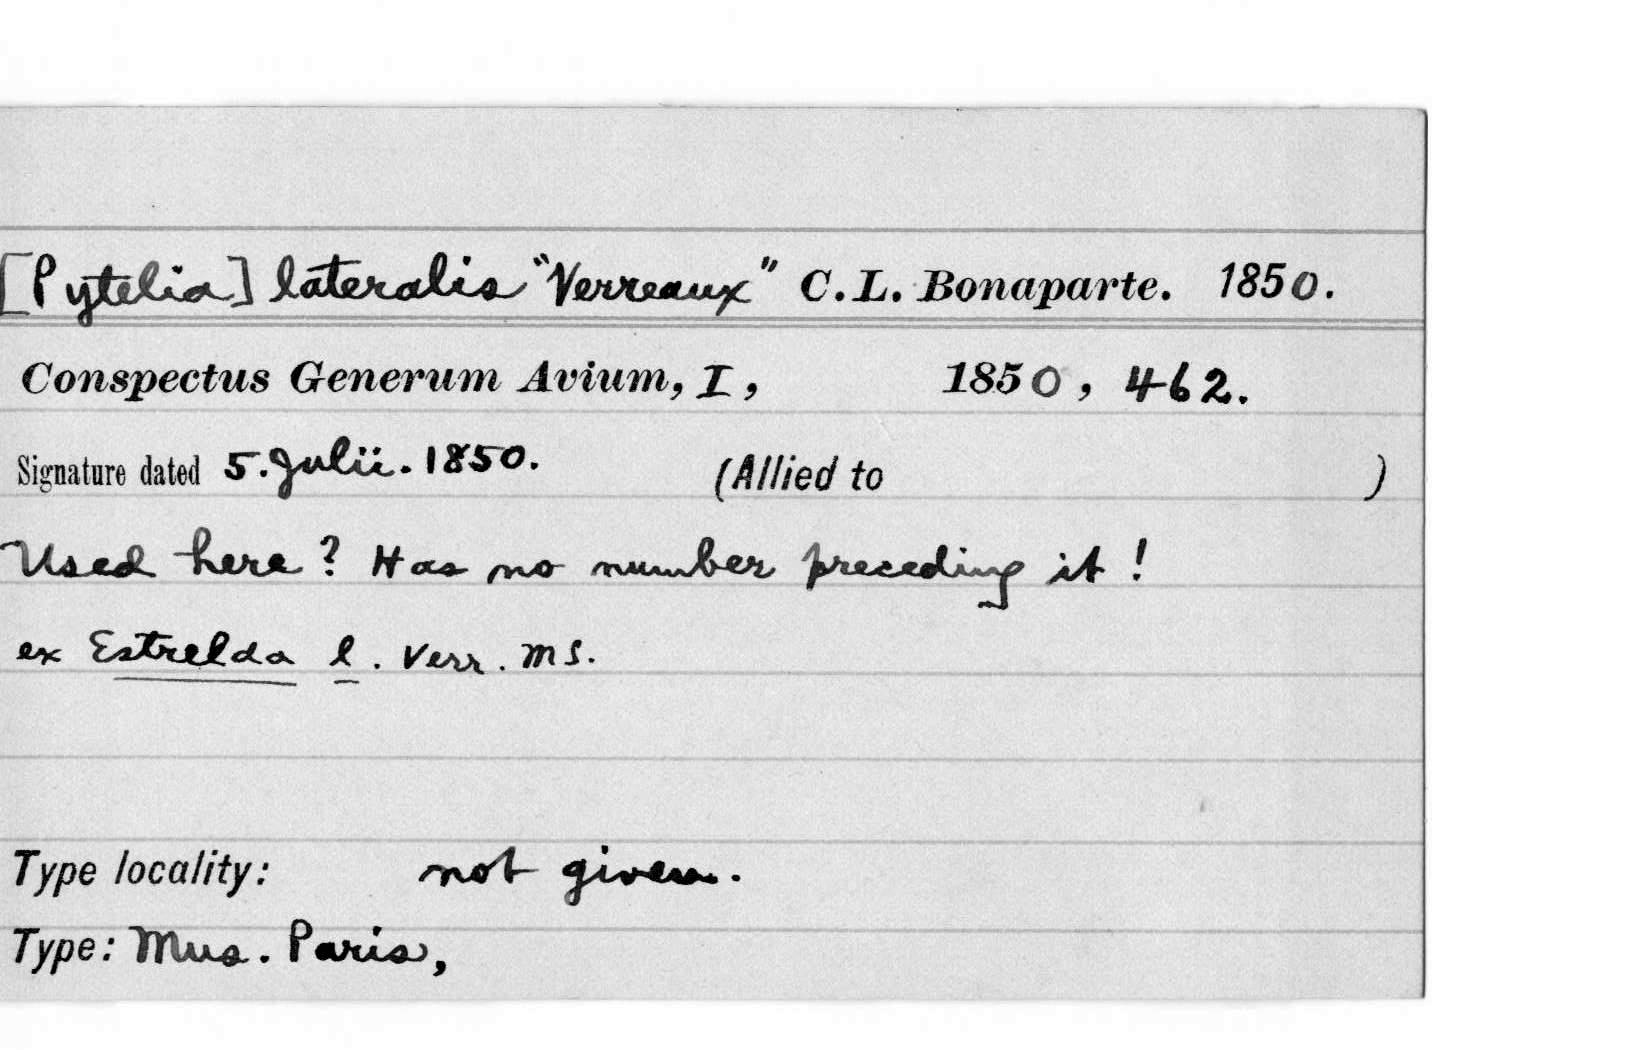 [Pytelia] lateralis "Verreaux" C.L. Bonaparte. 1850.
Conspectus Generum Avium, I, 1850, 462.
Signature dated 5. Julii. 1850. (Allied to )
Used here? Has no number preceding it!
ex Estrelda l. Verr. MS.
Type locality: not given.
Type: Mus. Paris,